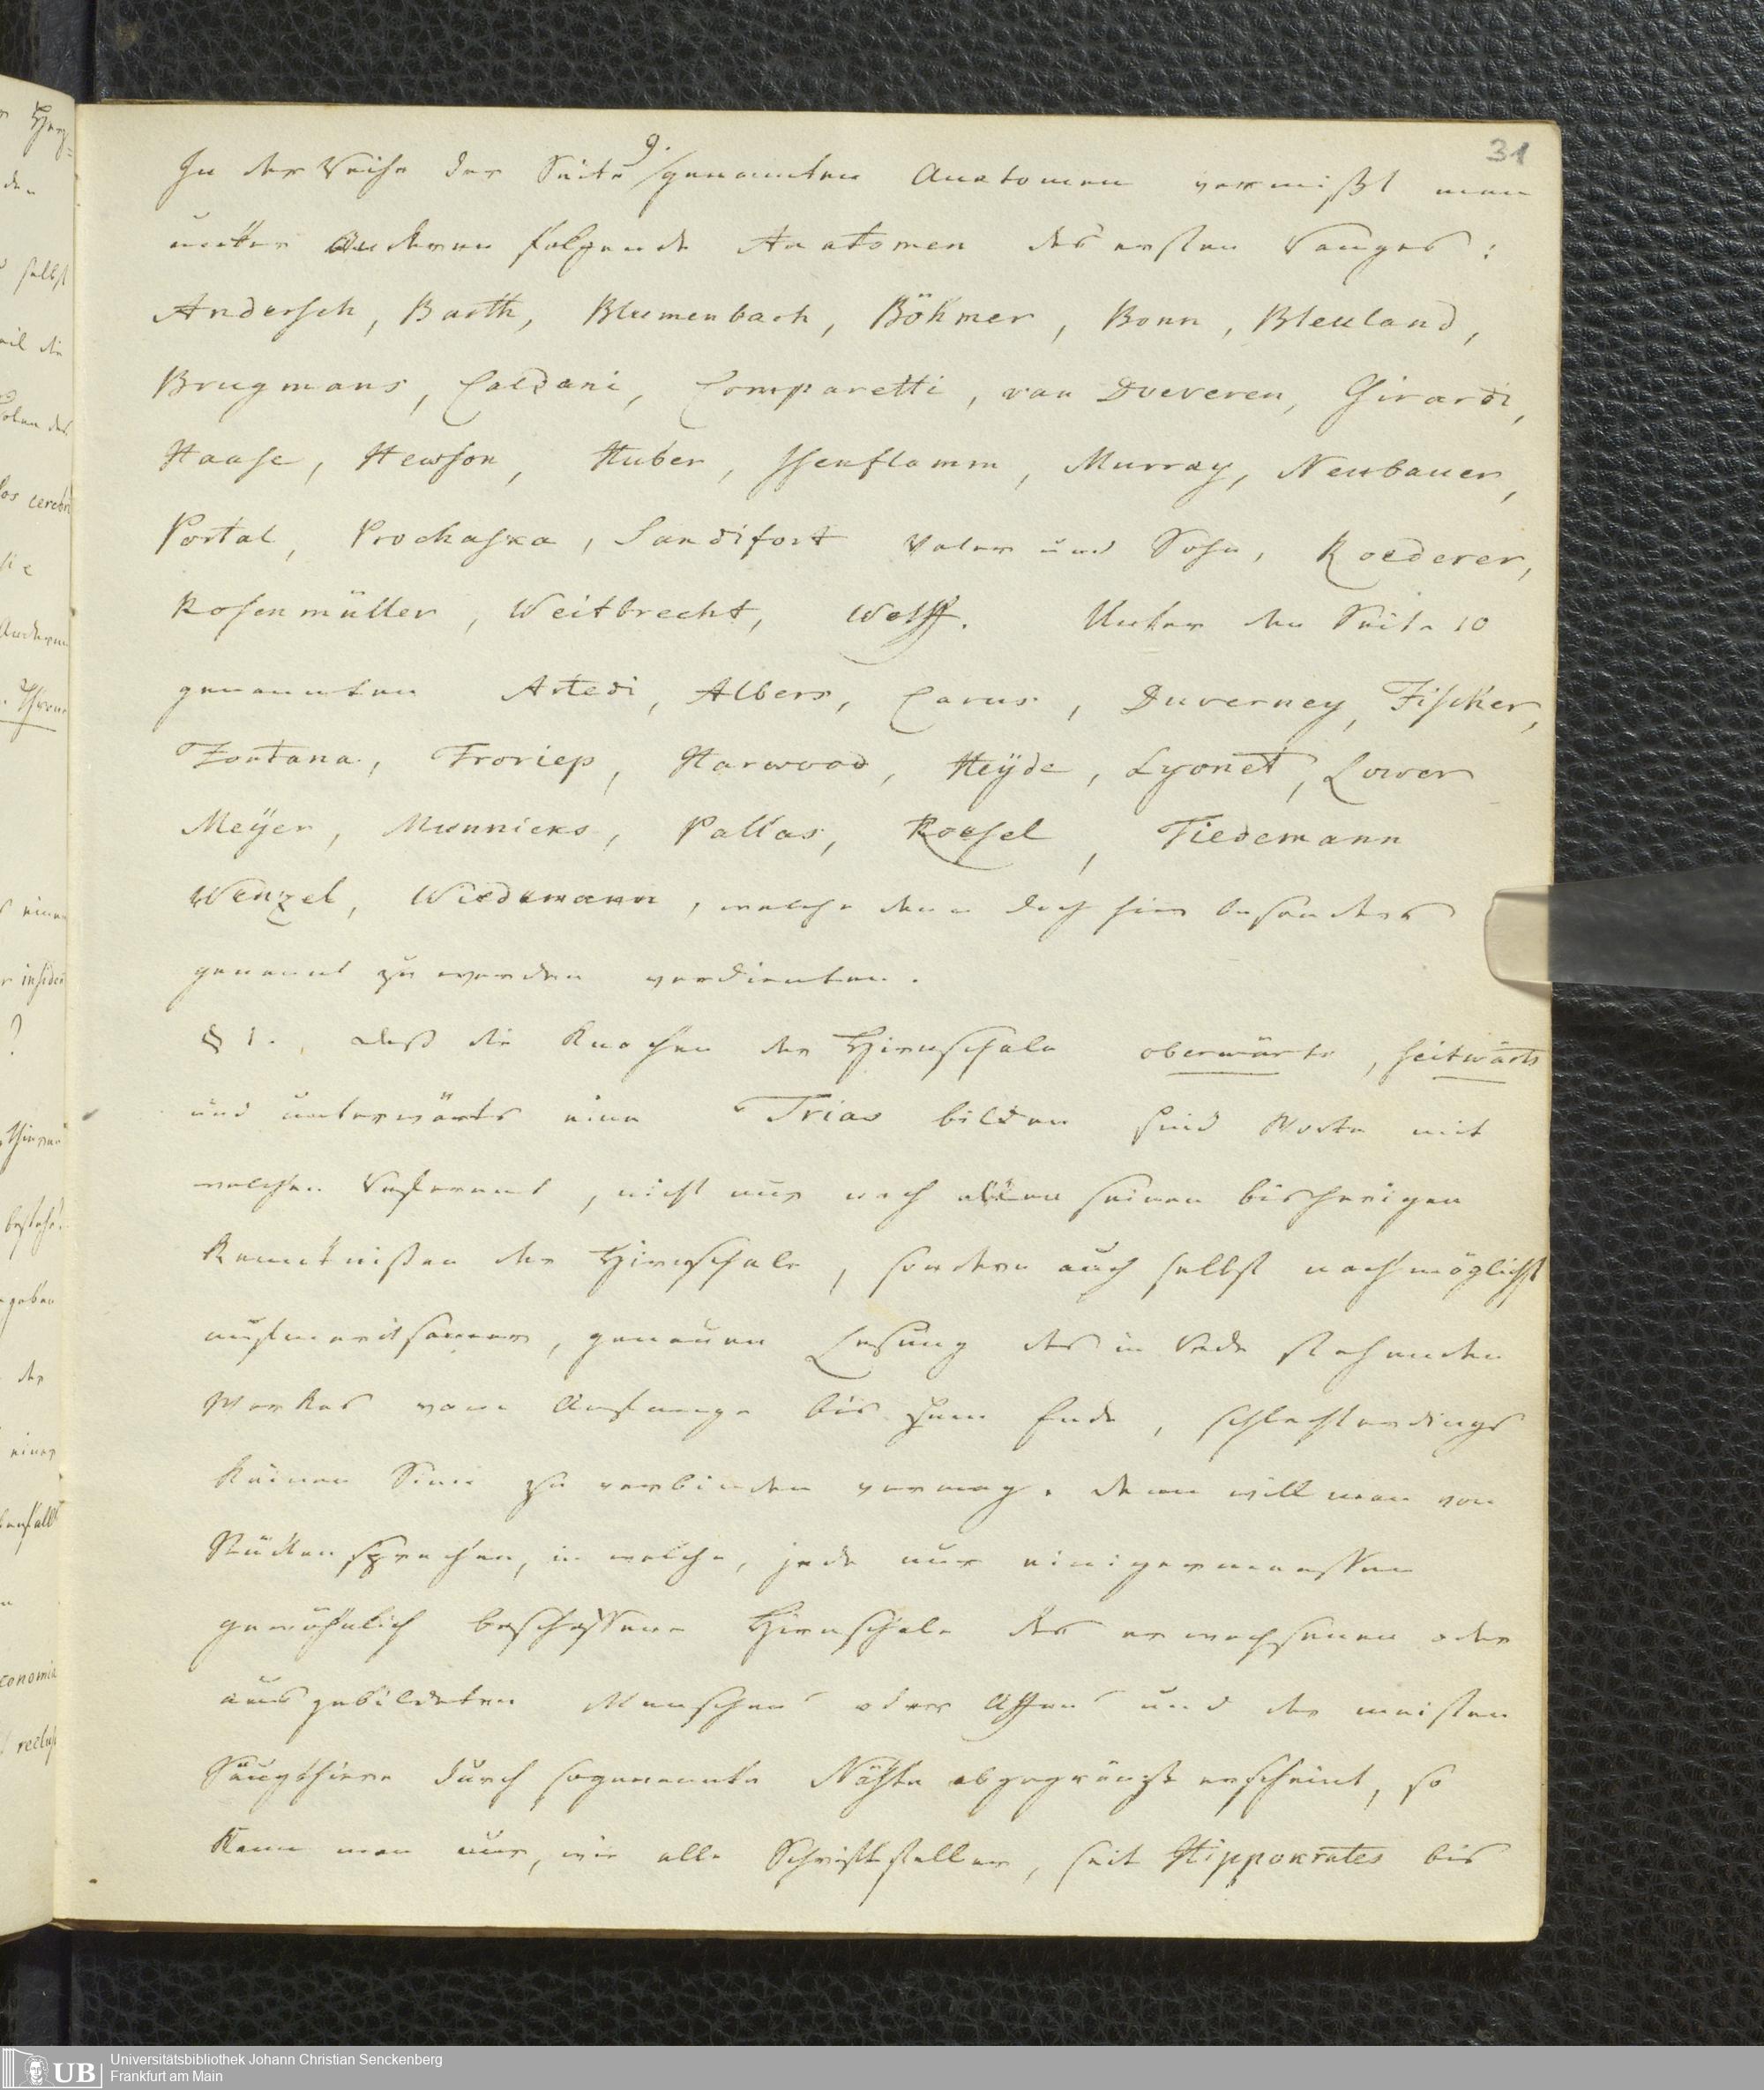 31
In der Reihe der Seite 9. genannten Anatomen vermißt man
unter Anderen folgende Anatomen des ersten Ranges:
Andersch, Barth, Blumenbach, Böhmer, Bonn, Bleuland,
Brugmans, Caldani, Comparetti, van Doeveren, Girardi,
Haase, Hewson, Huber, Isenflamm, Murray, Neubauer,
Portal, Prochaska, Sandifort Vater und Sohn, Roederer,
Rosenmüller, Weitbrecht, Wolff. Unter den Seite 10
genannten Artedi, Albers, Carus, Duverney, Fischer,
Fontana, Froriep, Harwood, Heÿde, Lyonet, Lower
Meÿer, Munnicks, Pallas, Roesel, Tiedemann
Wenzel, Wiedemann, welche denn doch hier besonders
genannt zu werden verdienten.
§ 1. Daß die Knochen der Hirnschale oberwärts, seitwärts
und unterwärts eine Trias bilden sind Worte mit
welchen Referent, nicht nur nach allen seinen bisherigen
Kenntnißen der Hirnschale, sondern auch selbst nach möglichst
aufmerksamer, genauen Lesung des in Rede stehenden
Werkes vom Anfange bis zum Ende, schlechterdings
keinen Sinn zu verbinden vermag. Denn will man von
Stücken sprechen, in welche, jede nur einigermaassen
gewöhnlich beschaffene Hirnschale des erwachsenen oder
ausgebildeten Menschen oder Affens und der meisten
Säugthiere durch sogenannte Näthe abgegränzt erscheint, so
kann man nur, wie alle Schriftsteller, seit Hippokrates bis
UB
Universitätsbibliothek Johann Christian Senckenberg
Frankfurt am Main